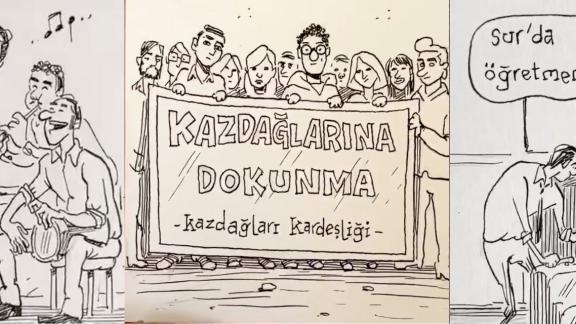 KAZDAĞLARINA
DOKUNMA
- Kazdağları Kardeşliği -
Sur'da
öğretmen